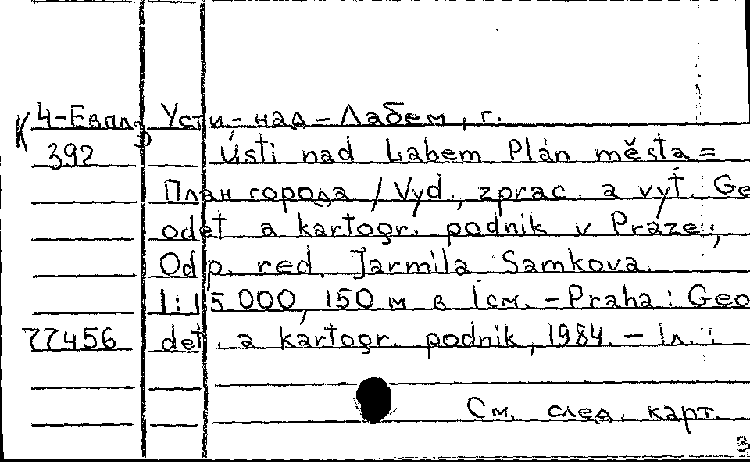 К 4-Евпл.3 Усти-над-Лабем, г.
392 Ústí nad Labem Plán města =
План города / Vyd., zprac. a vyt. Ge
odet a kartogr. podnik v Praze;
Odp. red. Jarmila Samkova.
1:15 000, 150 м в 1см. - Praha: Geo
77456 det. a kartogr. podnik, 1984. - 1л.:
См. след. карт.